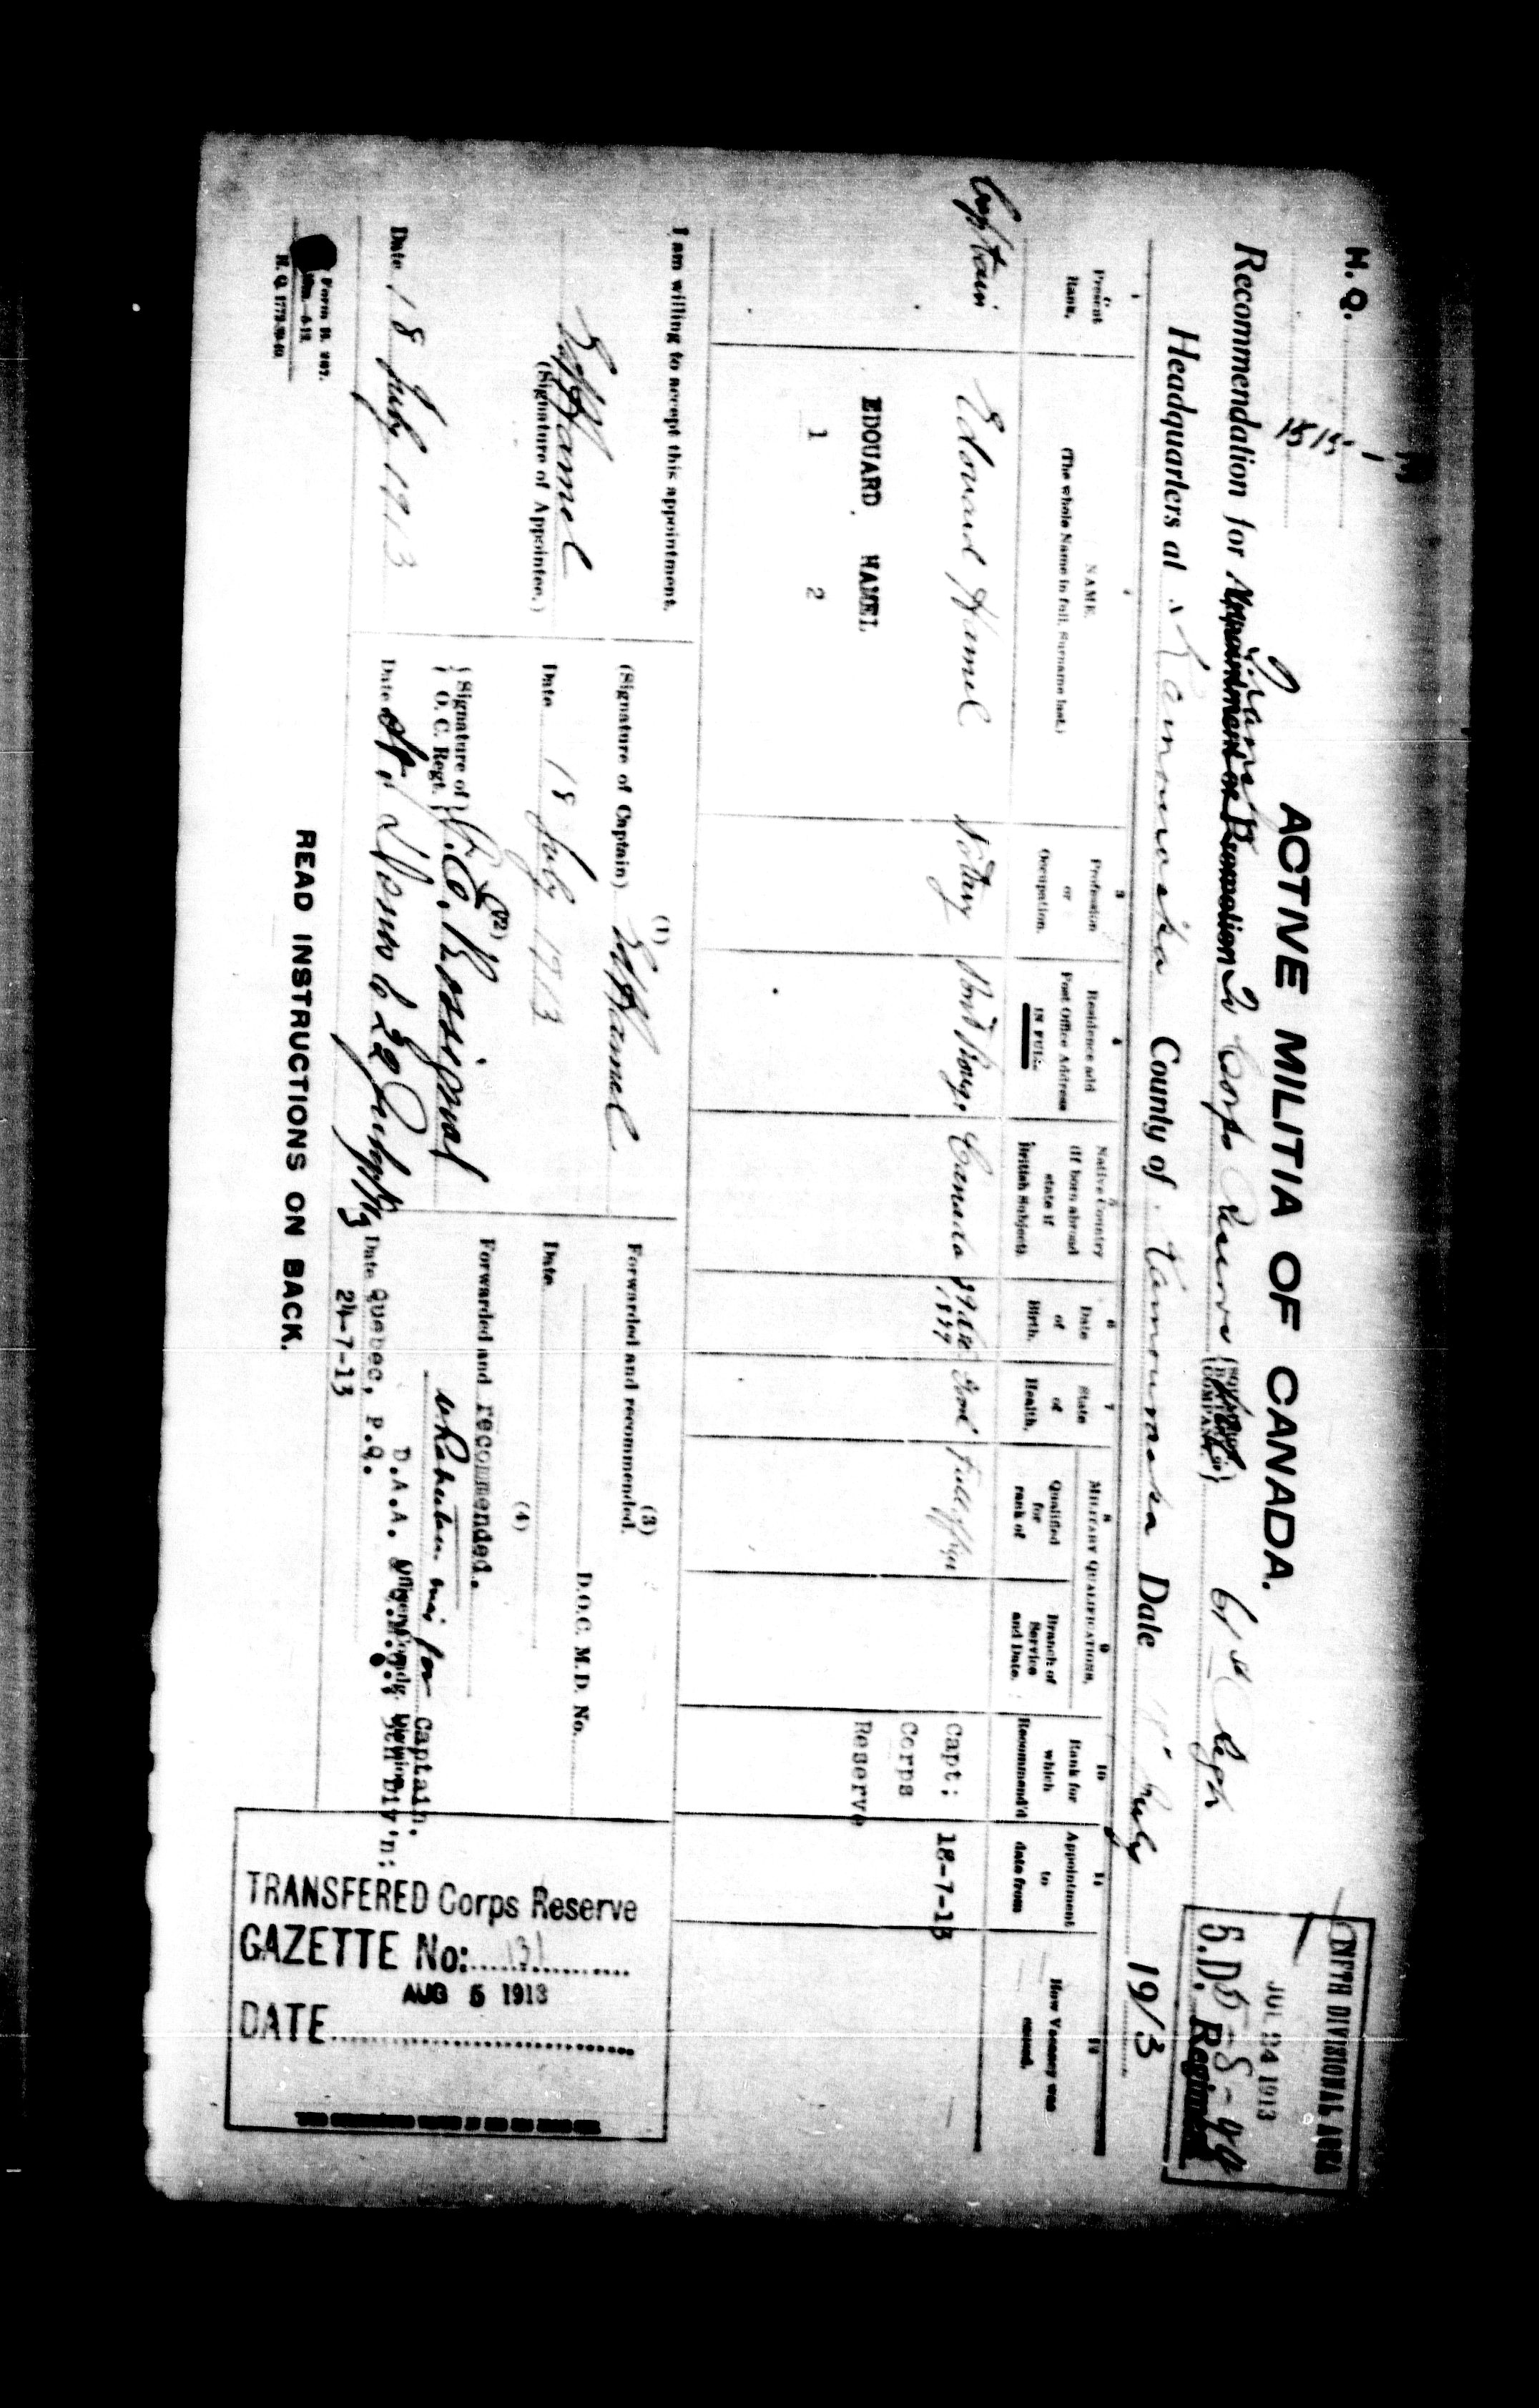 H. Q.
1515 -
FIFTH DIVISIONAL AREA
JUL 24 1913
5.D. 5-8-
Regiment
ACTIVE MILITIA OF CANADA.
Recommendation for Transfer to Corps Reserve 61st Regt
Headquarters at Kamouraska County of Kamouraska Date 18 July 1913
1
Present
Rank.
NAME.
(The whole Name in full, Surname last.)
3
Profession
or
Occupation.
4
Residence and
Post Office Address
IN FULL.
5
Native Country
(If born abroad
state if
British Subject)
6
Date
of
Birth.
7
State
of
Health.
MILITARY QUALIFICATIONS.
8
Qualified
for
rank of
9
Branch of
Service
and Date.
10
Rank for
which
Recommend'd
11
Appointment
to
date from
12
How Vacancy was
caused.
Captain Edouard Hamel Notary Pont Rouge Canada Good Capt: 18-7-13
1877
Corps
Reserve
EDOUARD HAMEL
1 2
I am willing to accept this appointment.
Ed Hamel
(Signature of Appointee.)
Date 18 July 1913
(1)
(Signature of Captain) Ed Hamel
Date 18 July 1913
(2)
Signature of
O. C. Regt.
Rossignol
Date 22 July 1913
(3)
Forwarded and recommended.
D.O.C. M.D. No.
Date
(4)
Forwarded and recommended.
maj for Captain.
D.A.A. 5th Div'n:
Officer Comdg. Division
Date Quebec, P.Q.
24-7-13
TRANSFERED Corps Reserve
GAZETTE No: 131
AUG 5 1913
DATE
Form B. 267.
H. Q. 1772-39-
READ INSTRUCTIONS ON BACK.